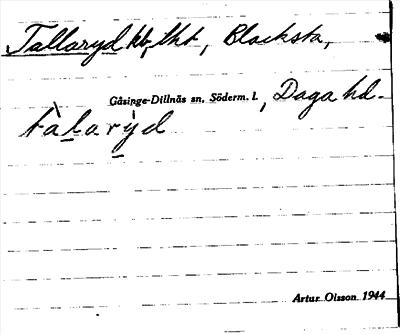 Tallaryd lht, Blacksta,
Gåsinge-Dillnäs sn, Söderm. l., Daga hd.
tàlarỳd
Artur Olsson 1944